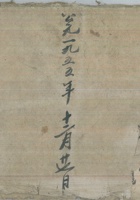 公元一九五五年十二月廿日